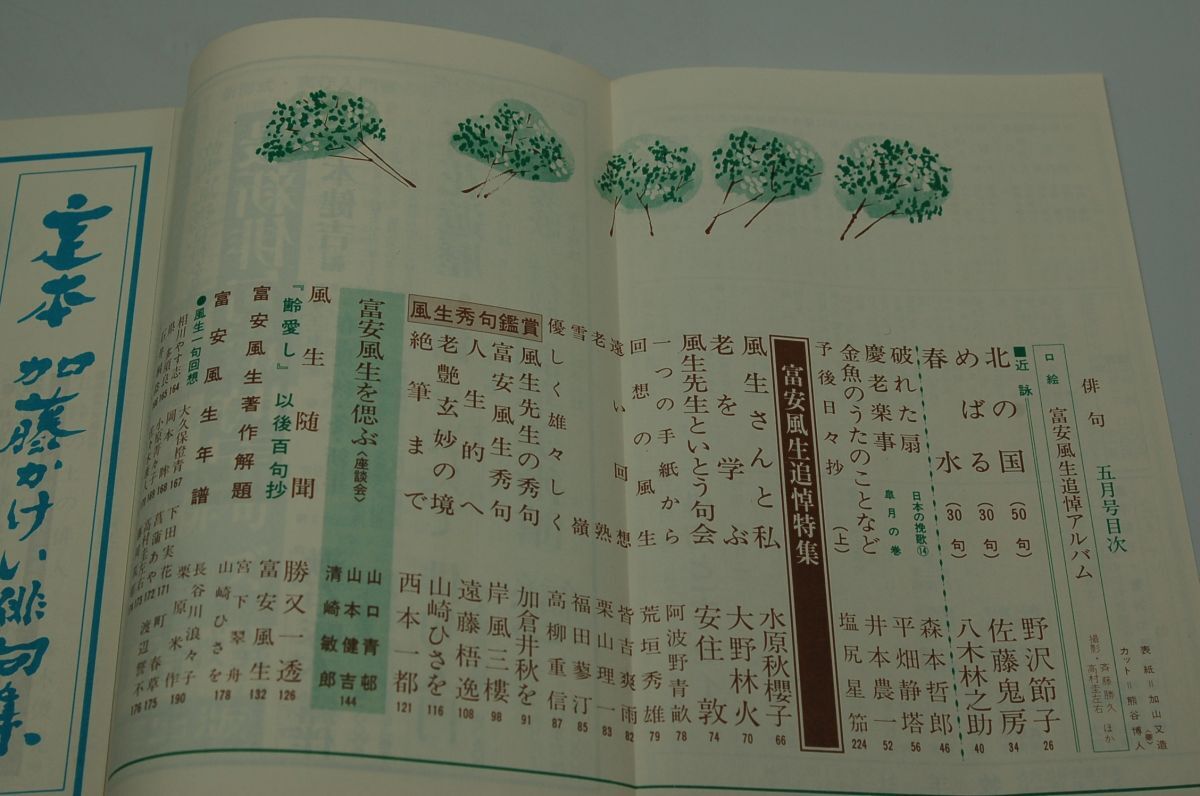 俳句 五月号目次
表紙＝加山又造
カット＝熊谷博人
口絵 富安風生追悼アルバム 撮影・斉藤勝久 高村圭左右 ほか
■近詠
北の国（50句） 野沢節子 26
めばる（30句） 佐藤鬼房 34
春水（30句） 八木林之助 40
破れた扇 日本の挽歌⑭ 皐月の巻 森本哲郎 46
慶老楽事 平畑静塔 56
金魚のうたのことなど 井本農一 52
予後日々抄（上） 塩尻星笳 224
富安風生追悼特集
風生さんと私 水原秋櫻子 66
老を学ぶ 大野林火 70
風生先生といとう句会 安住敦 74
一つの手紙から 阿波野青畝 78
回想の風生 荒垣秀雄 79
遠い回想 皆吉爽雨 82
老熟 栗山理一 83
雪嶺 福田蓼汀 85
優しく雄々しく 高柳重信 87
風生秀句鑑賞
風生先生の秀句 加倉井秋を 91
富安風生秀句 岸風三樓 98
人生的へ 遠藤梧逸 108
老艶玄妙の境 山崎ひさを 116
絶筆まで 西本一都 121
富安風生を偲ぶ〈座談会〉 山口青邨 山本健吉 清崎敏郎 144
風生随聞 勝又一透 126
『齢愛し』以後百句抄 富安風生 132
富安風生著作解題 宮下翠舟 山崎ひさを 178
富安風生年譜 長谷川浪々子 栗原米作 190
●風生一句回想
相川やす志 164 大久保橙青 167 下田実花 171 町春草 175
岡本眸 168 菖蒲あや 172 渡辺無不 176
小原菁々子 169 高村圭左右 173
定本 加藤かけい俳句集